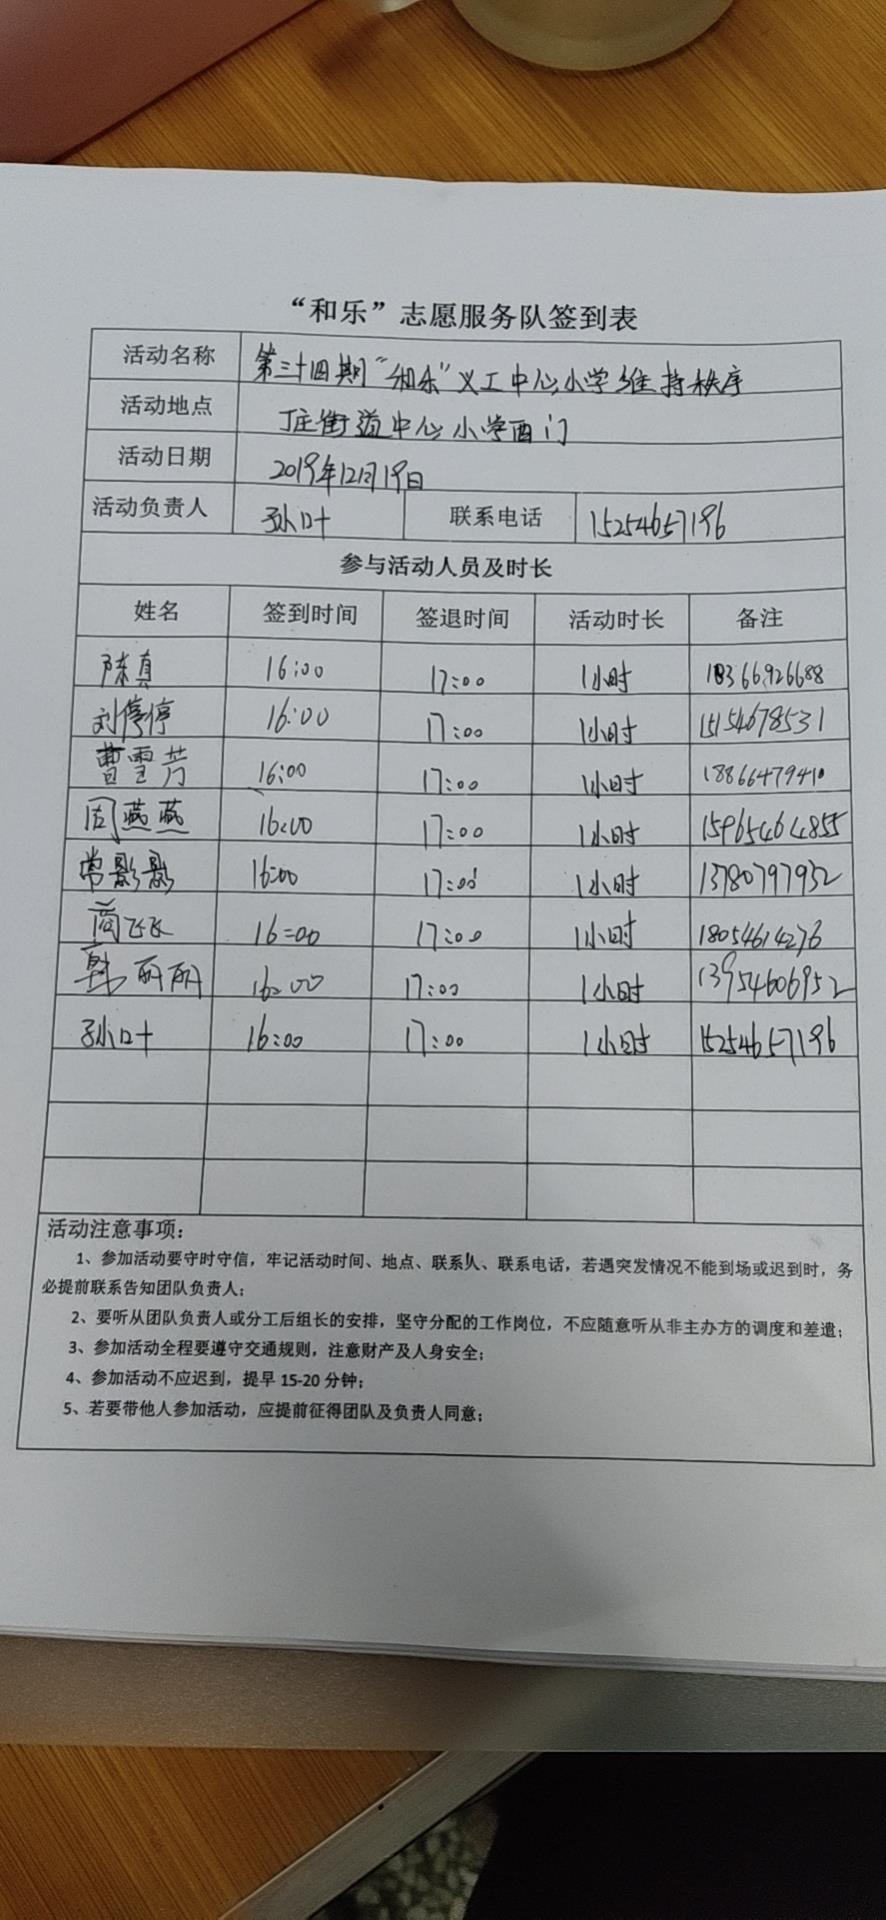 “和乐”志愿服务队签到表
活动名称 第三十四期“和乐”义工中心小学维持秩序
活动地点 丁庄街道中心小学西门
活动日期 2019年12月19日
活动负责人 孙叶 联系电话 15254657196
参与活动人员及时长
姓名 签到时间 签退时间 活动时长 备注
陈真 16:00 17:00 1小时 18366926688
刘停停 16:00 17:00 1小时 15154678531
曹雪芳 16:00 17:00 1小时 18866479410
周燕燕 16:00 17:00 1小时 15965464855
常影影 16:00 17:00 1小时 13780797932
商飞飞 16:00 17:00 1小时 18054614276
韩丽丽 16:00 17:00 1小时 13954606952
孙叶 16:00 17:00 1小时 15254657196
活动注意事项:
1、参加活动要守时守信，牢记活动时间、地点、联系人、联系电话，若遇突发情况不能到场或迟到时，务
必提前联系告知团队负责人；
2、要听从团队负责人或分工后组长的安排，坚守分配的工作岗位，不应随意听从非主办方的调度和差遣；
3、参加活动全程要遵守交通规则，注意财产及人身安全；
4、参加活动不应迟到，提早 15-20 分钟；
5、若要带他人参加活动，应提前征得团队及负责人同意；